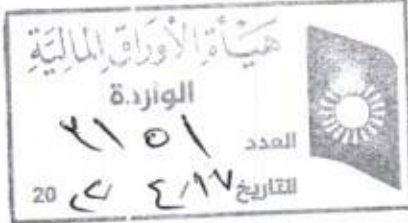 هَيْأَةُ الأَوْرَاقِ المَالِيَّةِ
الواردة
العدد ٢١٥١
التاريخ ٤/١٧ 20